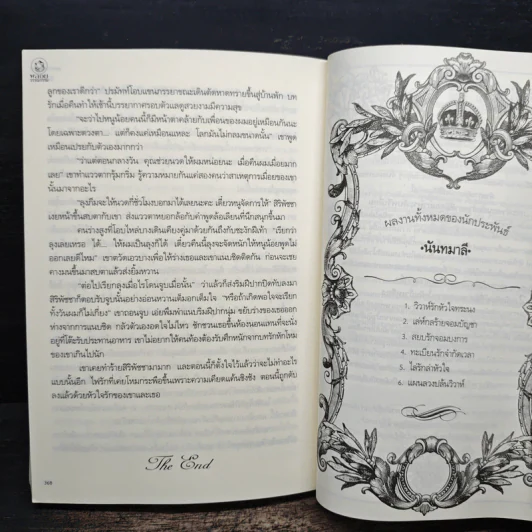 ลูกของเราดีกว่า" ปรมัทท์โอบแขนภรรยาขณะเดินตัดหาดทรายขึ้นสู่บ้านพัก บท
รักเมื่อคืนทำให้เช้านี้บรรยากาศรอบตัวแลดูสวยงามมีความสุข
"จะว่าไปหนูน้อยคนนี้ก็มีหน้าตาคล้ายกับเพื่อนของผมอยู่เหมือนกันนะ
โดยเฉพาะดวงตา... แต่ก็คงแค่เหมือนแหละ โลกมันไม่กลมขนาดนั้น" เขาพูด
เหมือนเปรยกับตัวเองมากกว่า
"ว่าแต่ตอนกลางวัน คุณช่วยนวดให้ผมหน่อยนะ เมื่อคืนผมเมื่อยมาก
เลย" เขาทำแววตากรุ้มกริ่ม รู้ความหมายกันแค่สองคนว่าสาเหตุการเมื่อยของเขา
นั้นมาจากอะไร
"ลุงภีมจะให้นวดกี่ชั่วโมงบอกมาได้เลยนะคะ เดี๋ยวหนูจัดการให้" สิริพัชชา
เงยหน้าขึ้นสบตากับเขา ส่งแววตาหยอกล้อกับคำพูดล้อเลียนที่นึกสนุกขึ้นมา
คนร่างสูงที่โอบไหล่บางเดินเคียงคู่มาด้วยกันถึงกับชะงักฝีเท้า "เรียกว่า
ลุงเลยเหรอ ได้... ให้ผมเป็นลุงก็ได้ เดี๋ยวคืนนี้ลุงจะจัดหนักให้หนูน้อยพูดไม่
ออกเลยดีไหม" เขาตวัดเอวบางเพื่อให้ร่างเธอและเขาแนบชิดติดกัน ก่อนจะเชย
คางมนขึ้นมาสบตาแล้วส่งยิ้มหวาน
"ต่อไปเรียกลุงเมื่อไรโดนจูบเมื่อนั้น" ว่าแล้วก็ส่งริมฝีปากปิดทับลงมา
สิริพัชชาก็ตอบรับจูบนั้นอย่างอ่อนหวานเติมอกเต็มใจ "หรือถ้าเกิดพอใจจะเรียก
ทั้งวันผมก็ไม่เกี่ยง" เขาถอนจูบ เอ่ยพึมพำแนบริมฝีปากนุ่ม ขยับร่างของเธอออก
ห่างจากการแนบชิด กลัวตัวเองอดใจไม่ไหว ชักชวนเธอขึ้นห้องนอนแทนที่จะนั่ง
อยู่ที่โต๊ะรับประทานอาหาร เขาไม่อยากให้คนท้องต้องรับศึกหนักจากบทรักพักไหม
ของเขาเกินไปนัก
เขาเคยทำร้ายสิริพัชชามามาก และตอนนี้ก็ตั้งใจไว้แล้วว่าจะไม่ทำอะไร
แบบนั้นอีก ไฟรักที่เคยโหมกระพือขึ้นเพราะความเคียดแค้นชิงชัง ตอนนี้ถูกดับ
ลงแล้วด้วยหัวใจรักของเขาและเธอ
The End
368
ผลงานทั้งหมดของนักประพันธ์
•นันทมาลี•
1. วิวาห์รักหัวใจทระนง
2. เล่ห์กลร้ายจอมบัญชา
3. สยบรักจอมบงการ
4. ทะเบียนรักจำกัดเวลา
5. ไล่รักล่าหัวใจ
6. แผนลวงปล้นวิวาห์